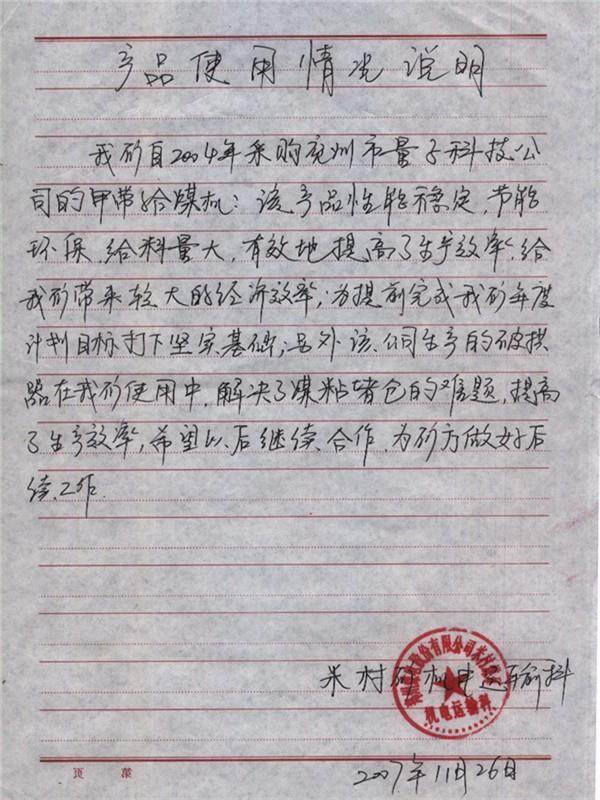 产品使用情况说明
我矿自2004年采购兖州市量子科技公
司的甲带给煤机；该产品性能稳定，节能
环保，给料量大，有效地提高了生产效率，给
我矿带来较大的经济效率；为提前完成我矿年度
计划目标打下坚实基础；另外该公司生产的破拱
器在我矿使用中，解决了煤粘堵仓的难题，提高
了生产效率，希望以后继续合作，为矿方做好后
续工作.
米村矿机电运输科
股份有限公司米村
机电运输科
2007年11月26日
页 第